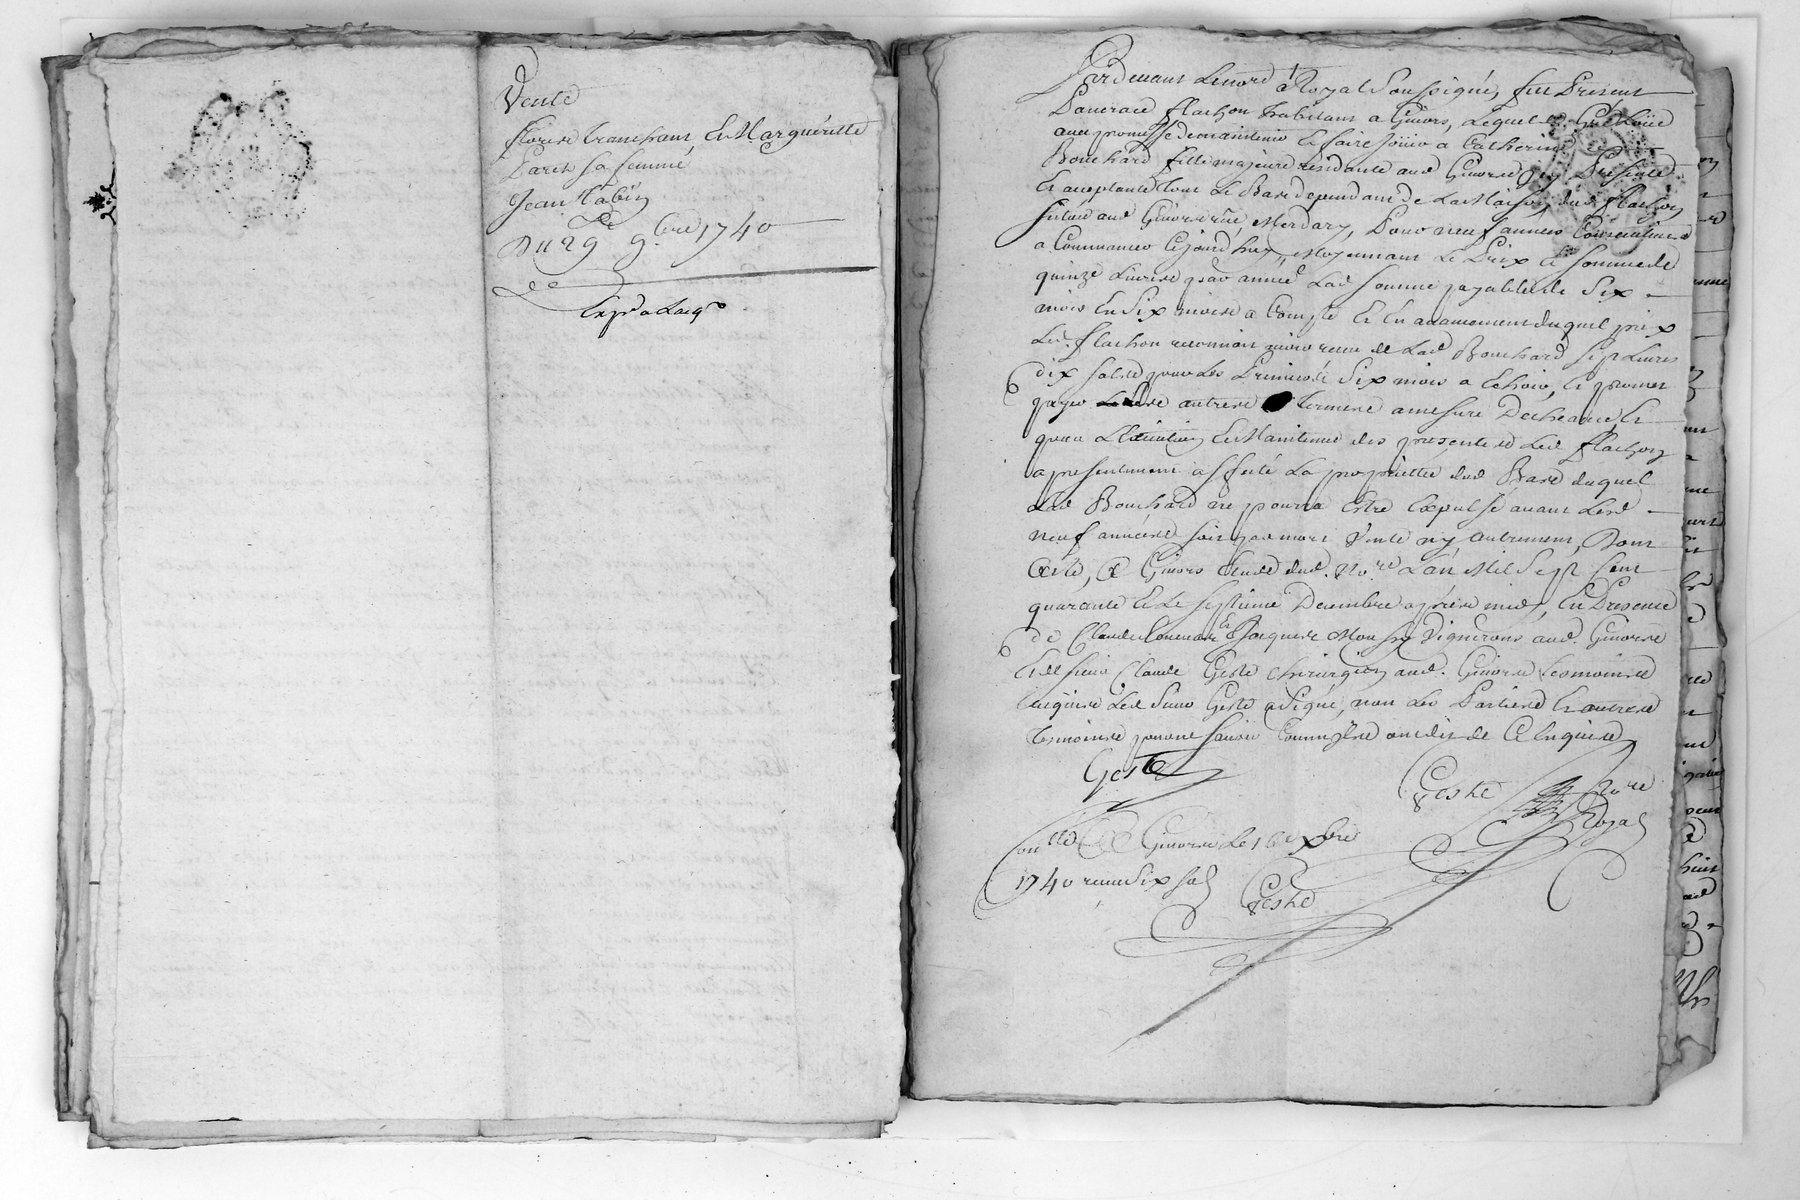 Vente
florise tranchant, Et Marguéritte
Paret sa femme
Jean Nabin
De
Du 29 9.bre 1740
Par devant Le nore Royal Soussigné, fut Present
Pancrace flachon habitant a Givors, Lequel a
avec promesse de maintenir Et faire joüir a Catherine
Bouchard fille majeure residante aud Givors Presente
Et acceptante tout Le Bas dependant de La Maison dud flachon
Situé aud Givors rüe Merdary, Pour neuf années Consecutives
a Commancer Cejourdhuy, Moyennant Le Prix Et somme de
quinze Livres par année Lad somme payable de Six
mois En Six mois a Compte Et En
Led. flachon reconnoit avoir receu de Lad Bouchard Sept Livres
dix sols pour Les Premiers Six mois a Echoir, Et promet
payer Les autres termes a mesure Decheance, Et
pour Et Maintenue des presentes Led flachon
a presentement affecté La proprietté dud Bas duquel
Lad Bouchard ne pourra Estre Expulsé avant Lesd
neuf années soit par mort Vente ny autrement, Dont
acte, a Givors Etude dud. No.re L'an Mil Sept Cent
quarante Et Le Septieme Decembre après midy, En Presence
de Claude Et Jacques Vignerons aud. Givors
Et de Sieur Claude Geste chirurgien aud. Givors tesmoins
Enquis Led Sieur Geste a Signé, non Les Parties Et autres
tesmoins pour ne savoir Comm'ils ont dit de Ce Enquis
Geste
Geste No.re
Royal
Conllé a Givors Le xbre
1740 receu Six sols
Geste